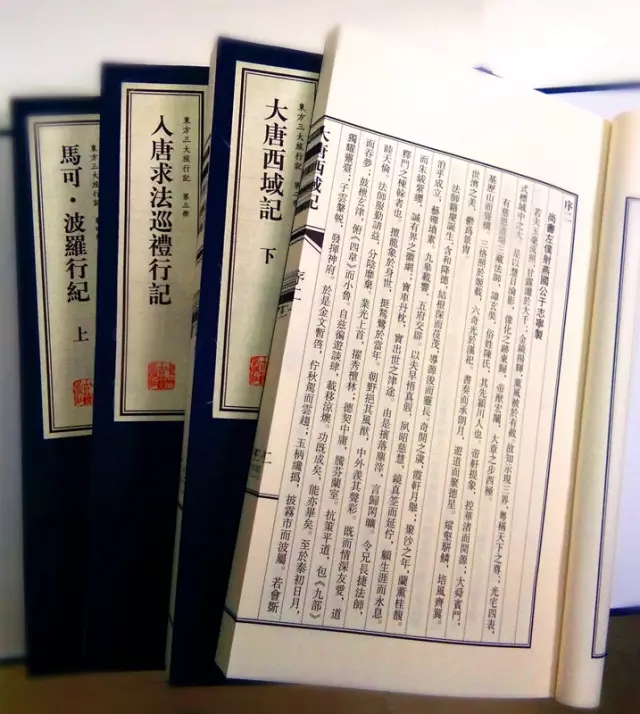 序二
尚書左僕射燕國公于志寧製
若夫玉毫流照，甘露灑於大千；金鏡揚暉，薰風被於有截。故知示現三界，粵稱天下之尊；光宅四表，
式標域中之大。是以慧日淪影，像化之跡東歸；帝猷宏闡，大章之步西極。
有慈恩道場三藏法師，諱玄奘，俗姓陳氏，其先潁川人也。帝軒提象，控華渚而開源；大舜賓門，
基歷山而聳構。三恪照於姬載，六奇光於漢祀。書奏而承朗月，遊道而聚德星。縱壑駢鱗，培風齊翼。
世濟之美，鬱為景胄。
法師籍慶誕生，含和降德，結根深而蓊茂，導源浚而靈長。奇開之歲，霞軒月舉；聚沙之年，蘭薰桂馥。
洎乎成立，藝殫墳素，九皋載響，五府交辟。以夫早悟真假，夙昭慈慧，鏡真筌而延佇，顧生涯而永息。
而朱紱紫纓，誠有界之徽網；寶車丹枕，實出世之津途。由是擯落塵滓，言歸閑曠。令兄長捷法師，
釋門之棟幹者也。擅龍象於身世，挺鶖鷺於當年。朝野挹其風猷，中外羨其聲彩。既而情深友愛，道
睦天倫。法師服勤請益，分陰靡棄。業光上首，擢秀檀林；德契中庸，騰芬蘭室。抗策平道，包《九部》
而吞夢；鼓枻玄津，俯《四韋》而小魯。自茲遍遊談肆，載移涼燠。功既成矣，能亦畢矣。至於泰初日月，
獨耀靈臺，子雲鞶帨，發揮神府。於是金文暫啟，佇秋駕而雲趨；玉柄纔撝，披霧市而波屬。若會斲
大唐西域記
序二
二
東方三大旅行記
大唐西域記 下
東方三大旅行記 第三冊
入唐求法巡禮行記
東方三大旅行記
馬可·波羅行紀 上